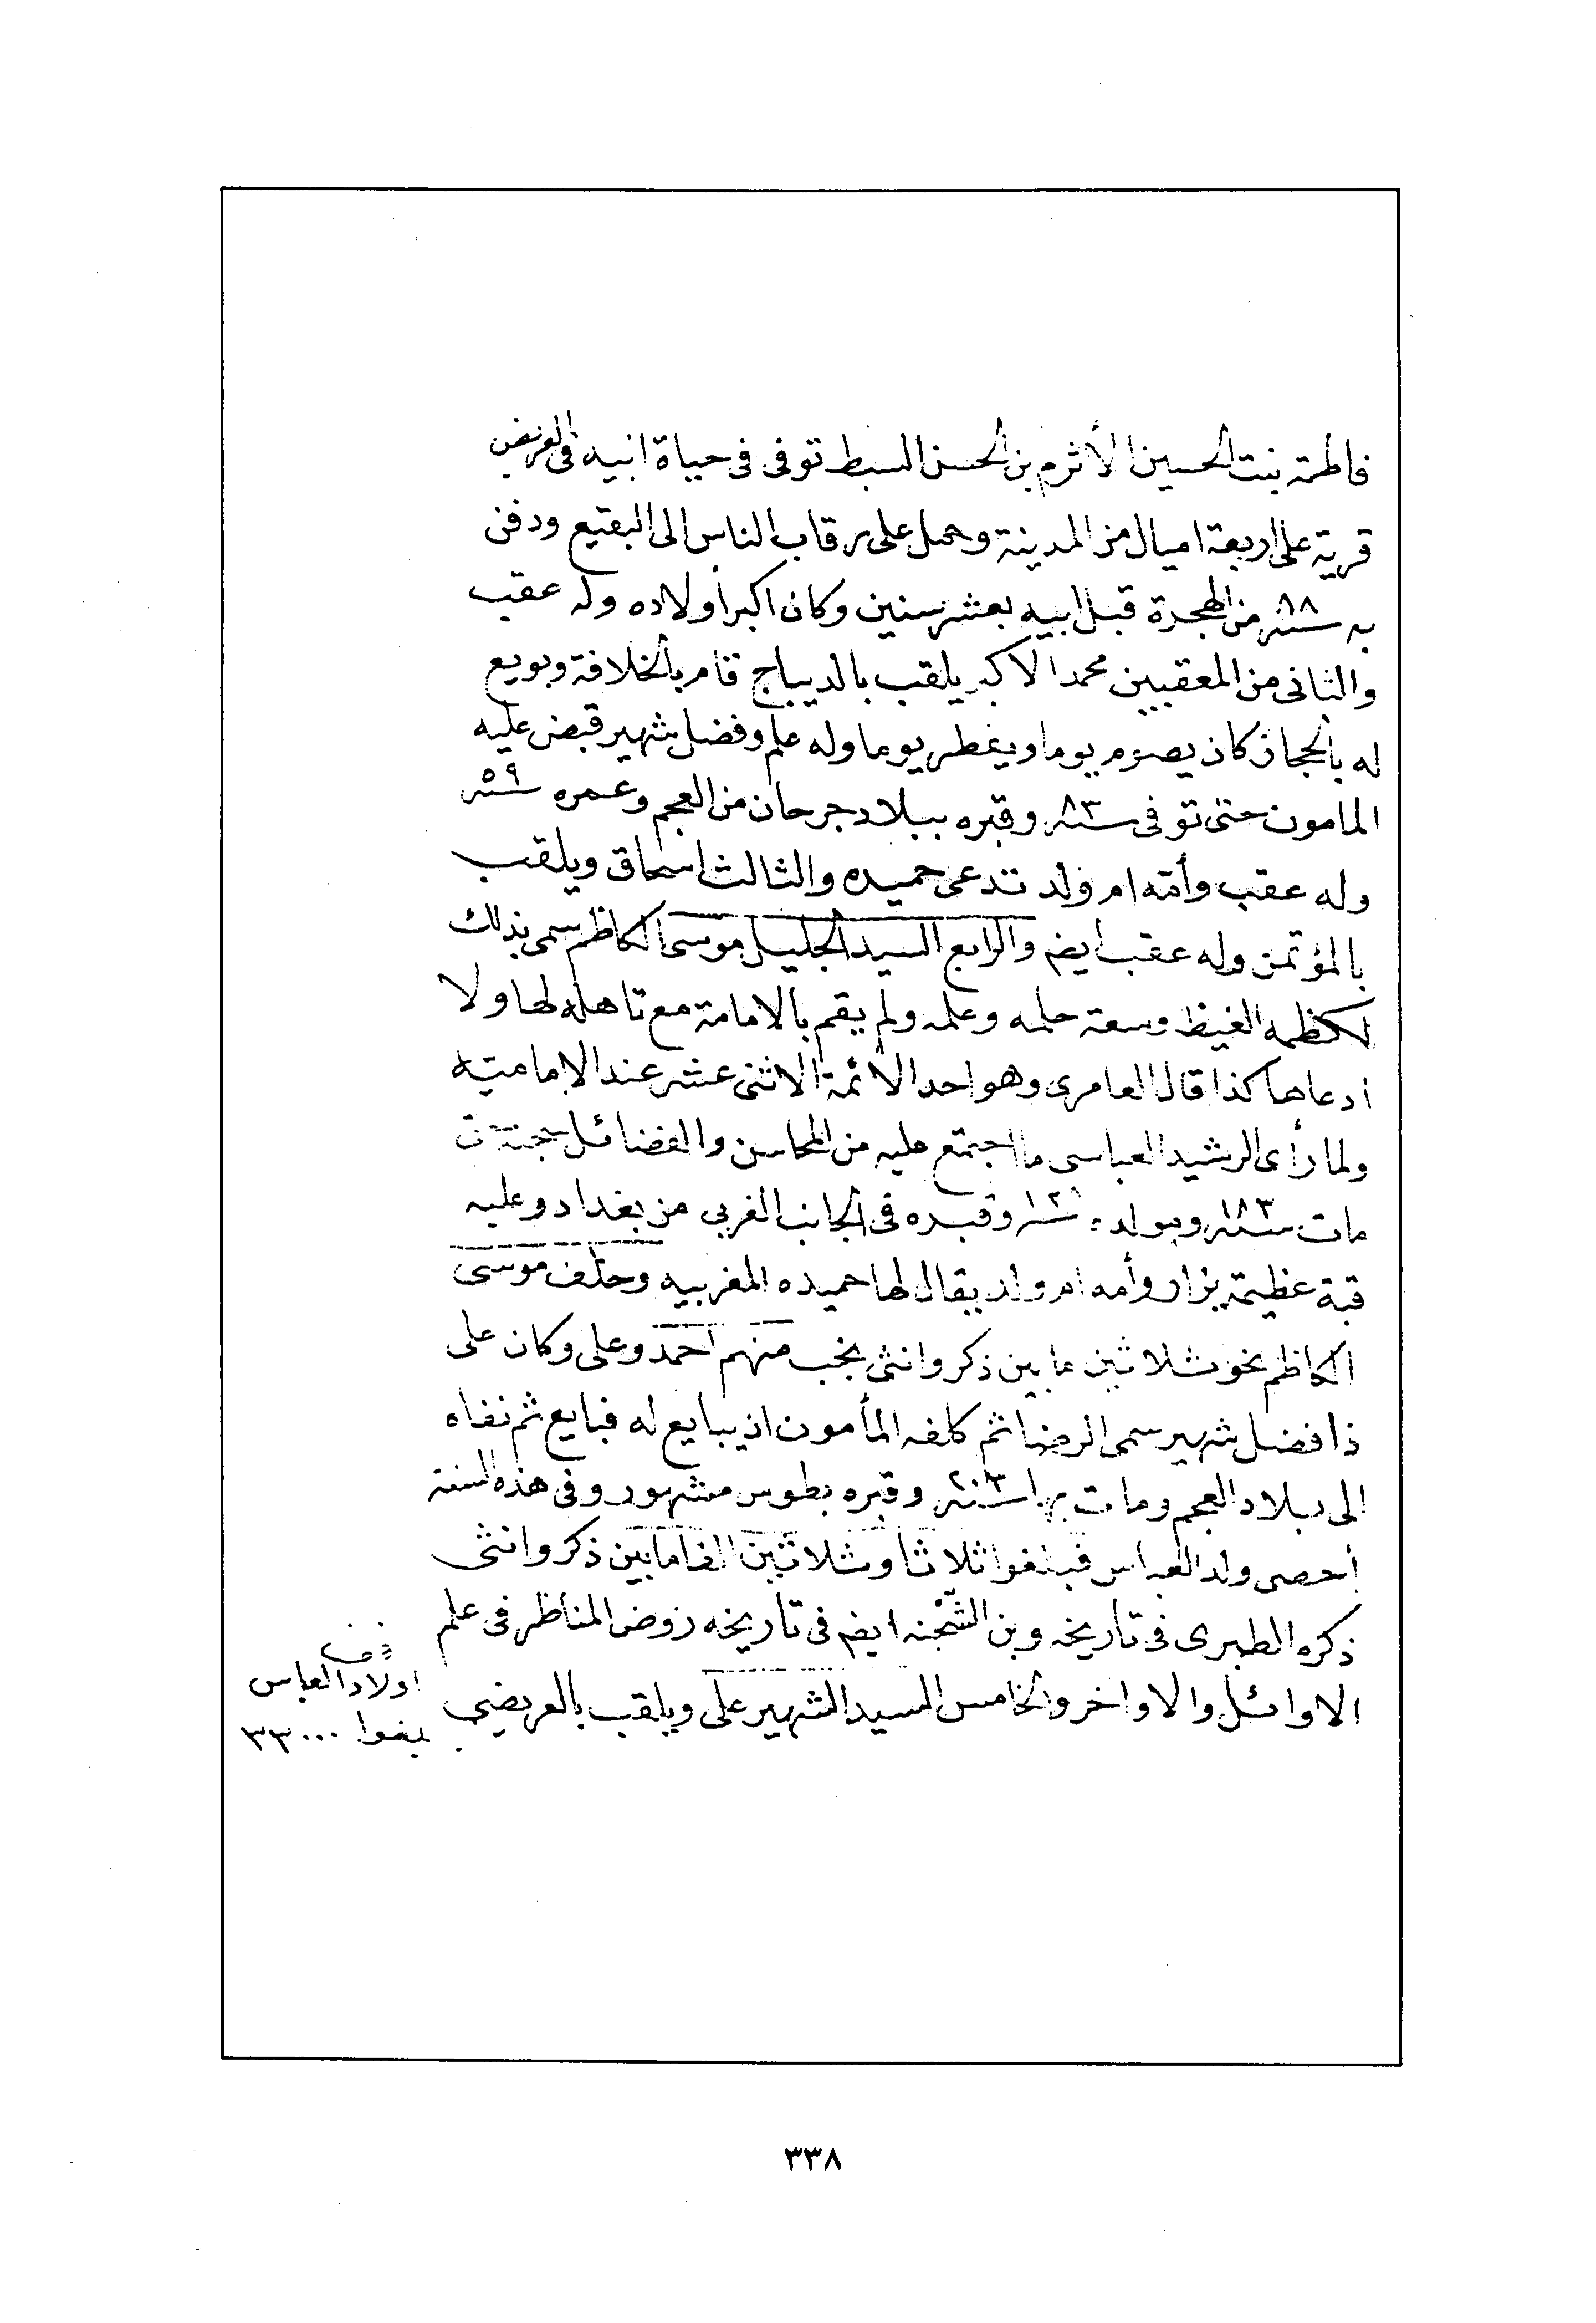 فاطمة بنت الحسين الأثرم بن الحسن السبط توفى فى حياة ابيه فى العريض
قرية على اربعة اميال من المدينة وحمل على رقاب الناس الى البقيع ودفن
به سنة من الهجرة قبل ابيه بعشر سنين وكان اكبر أولاده وله عقب
والثانى من المعقبين محمد الاكبر يلقب بالديباج قام بالخلافة وبويع
له بالحجاز كان يصوم يوما ويفطر يوما وله علم وفضل شهير قبض عليه
المامون حتى توفى سنة وقبره ببلاد جرحان من العجم وعمره ٥٩ سنة
وله عقب وأمه ام ولد تدعى حميده والثالث اسحاق ويلقب
بالمؤتمن وله عقب ايضم والرابع السيد الجليل موسى الكاظم سمى بذلك
لكظمه الغيظ وسعة حلمه وعلمه ولم يقم بالامامة مع تاهله لها ولا
ادعاها كذا قال العامرى وهو احد الائمة الاثنى عشر عند الإمامية
ولما رأى الرشيد العباسى ما اجتمع عليه من المحاسن والفضائل
مات سنة ١٨٣ ومولده وقبره فى الجانب الغربى من بغداد وعليه
قبة عظيمة يزار وأمه ام ولد يقال لها حميده المغربيه وخلف موسى
الكاظم نحو ثلاثين ما بين ذكر وانثى نجب منهم احمد وعلى وكان على
ذا فضل شهير سمى الرضا ثم كلفه المأمون ان يبايع له فبايع ثم نفاه
الى بلاد العجم ومات بها سنة ٢٠٣ وقبره بطوس مشهور وفى هذه السنة
أحصى ولد العباس فبلغوا ثلاثا وثلاثين الفا مابين ذكر وانثى
ذكره الطبرى فى تاريخه وبن الشحنه ايضم فى تاريخه روض المناظر فى علم
الاوائل والاواخر والخامس السيد الشهير على ويلقب بالعريضي
اولاد العباس
بلغوا ٣٣٠٠٠
٣٣٨